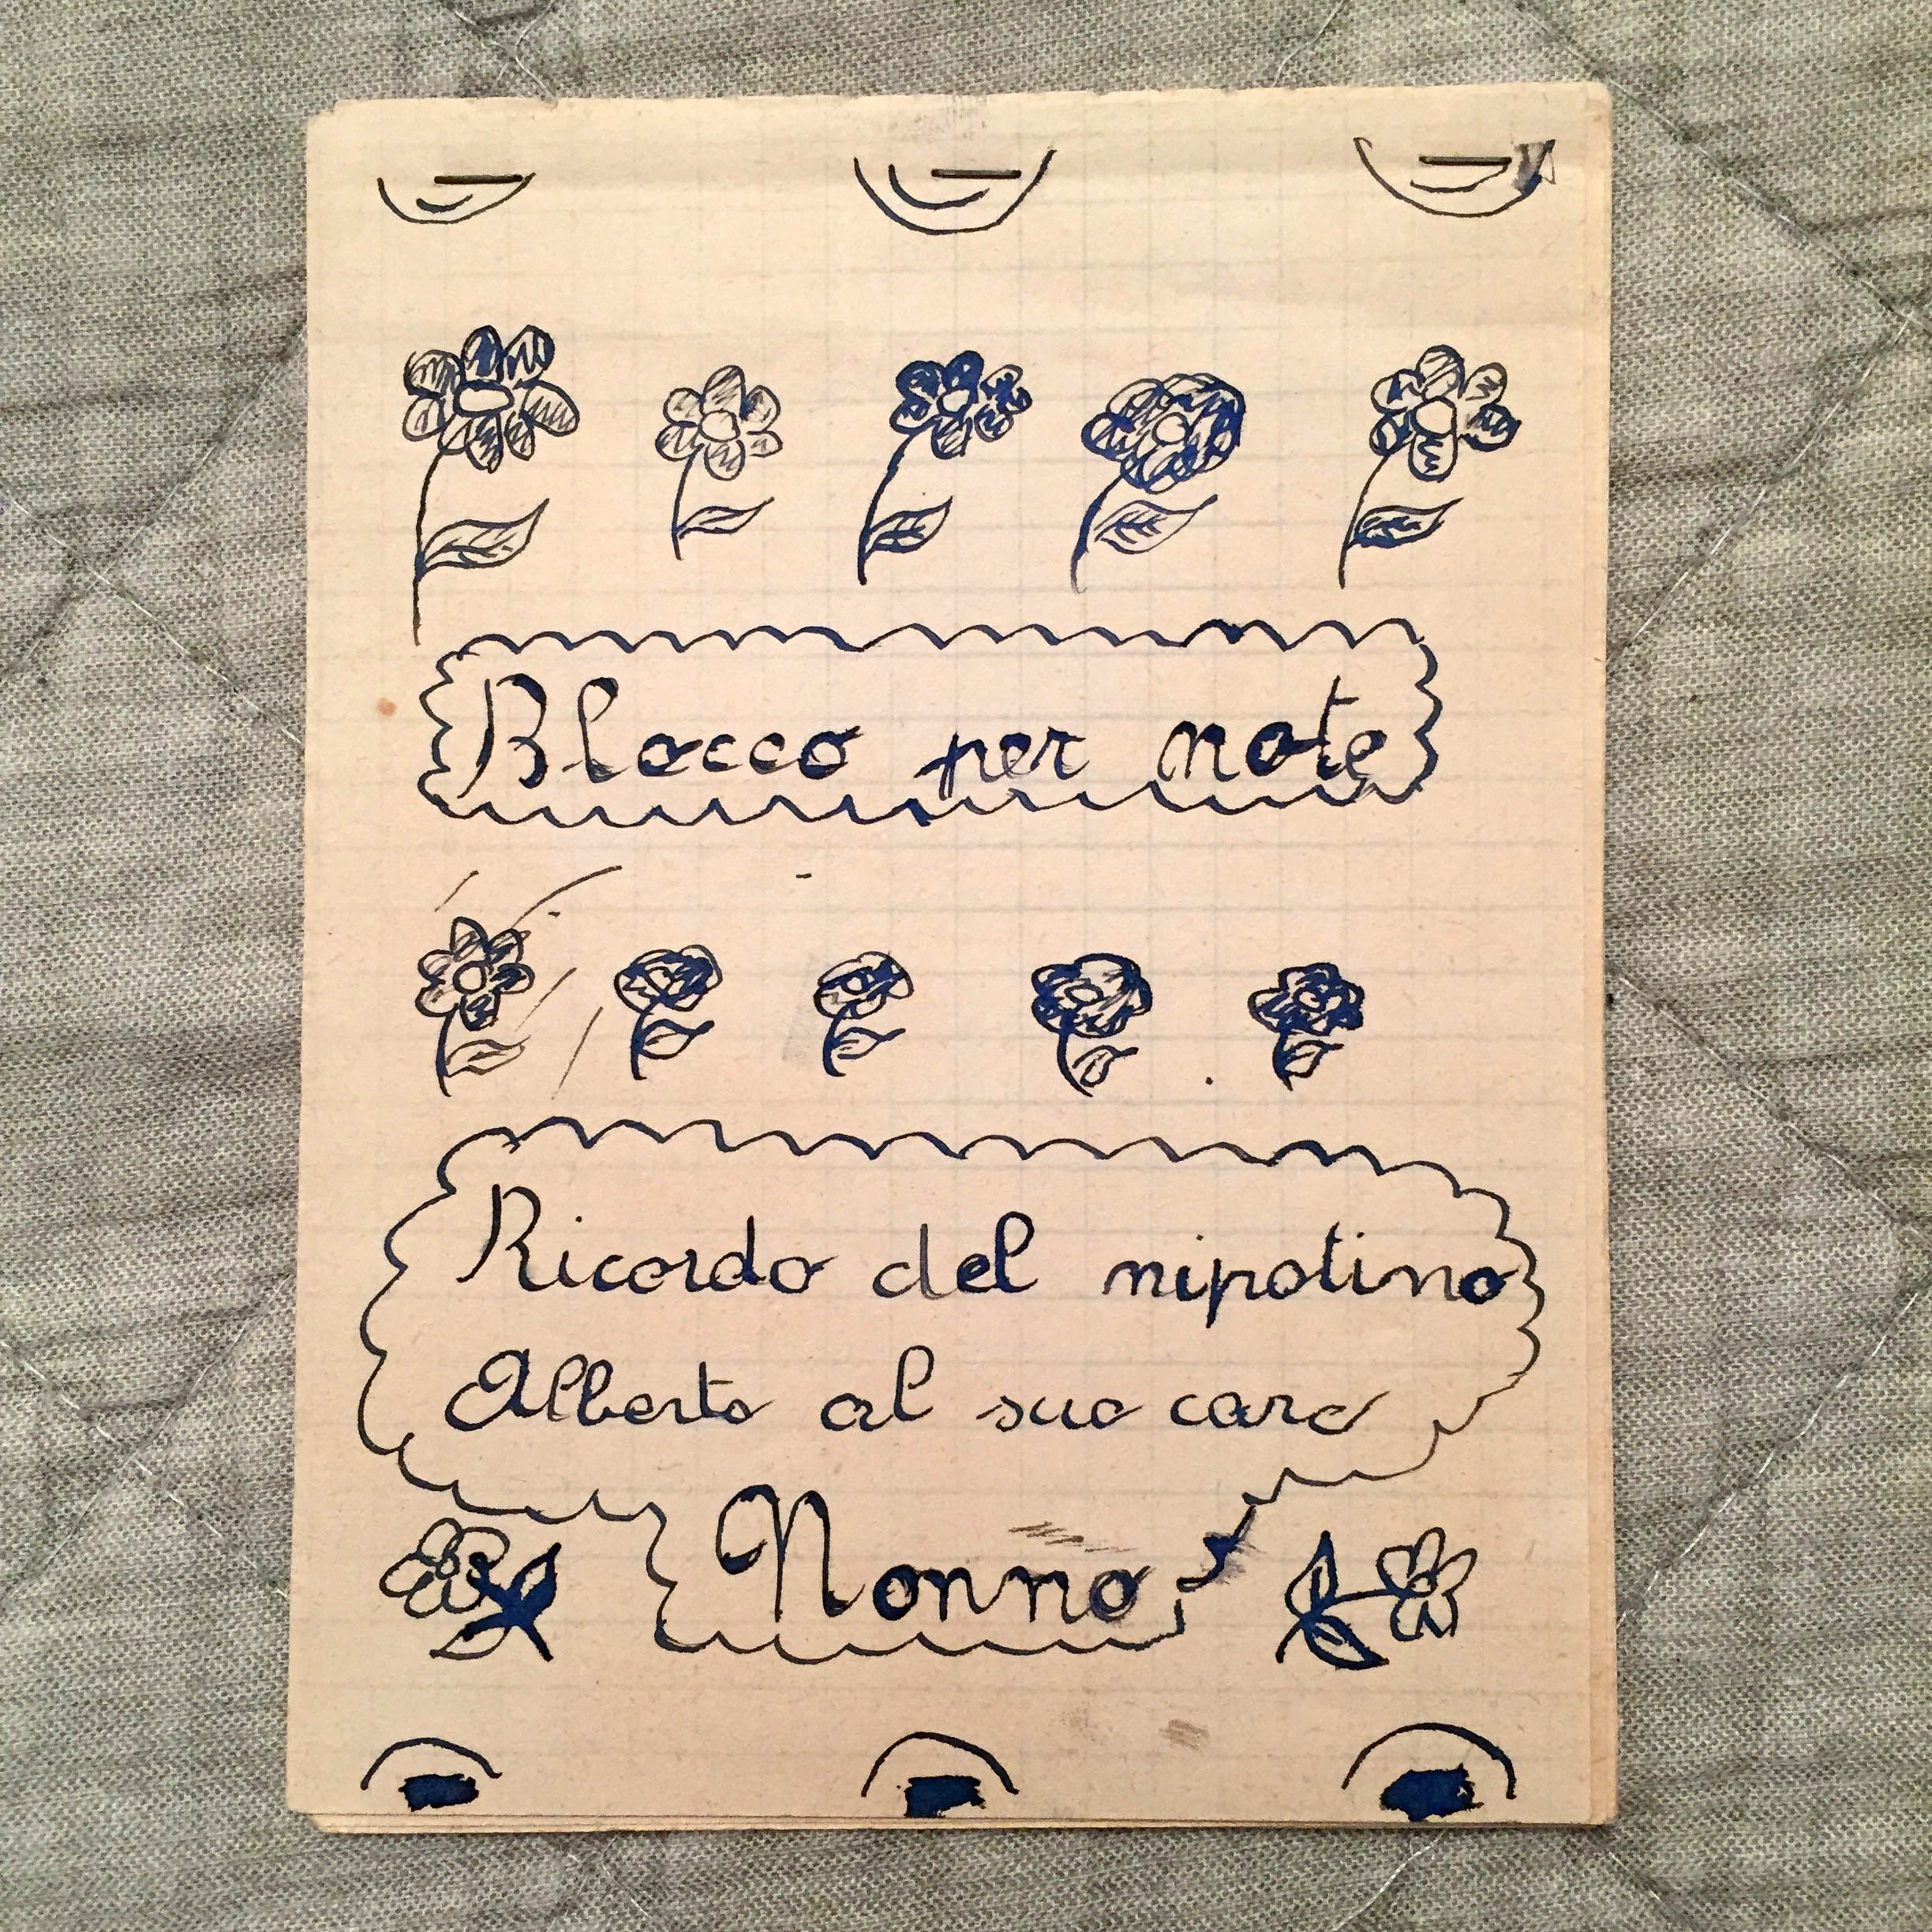 Blocco per note
Ricordo del nipotino
Alberto al suo caro
Nonno